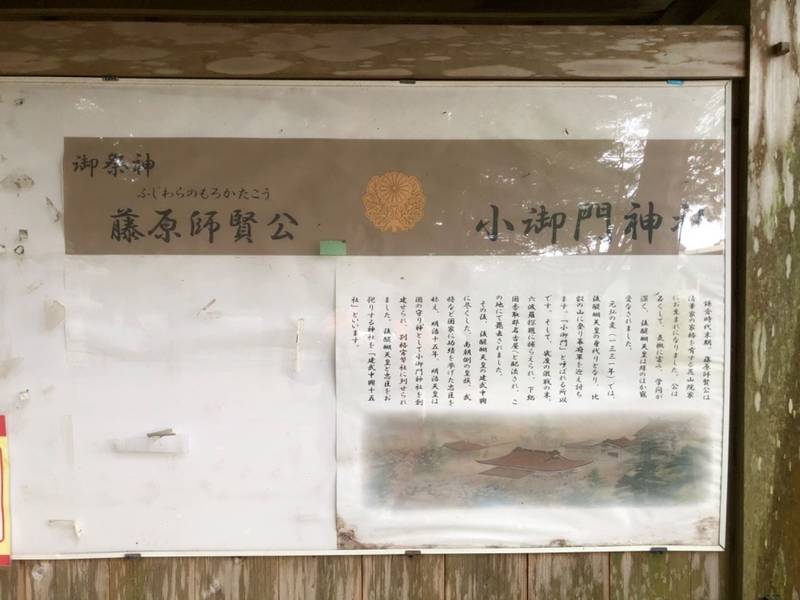 小御門神社
御祭神
ふじわらのもろかたこう
藤原師賢公
鎌倉時代末期、藤原師賢公は
清華家の家格を有する花山院家
にお生まれになりました。公は
若くして、英邁に富み、学問が
深く、後醍醐天皇は殊のほか寵
愛なされました。
元弘の変（一三三一年）では、
後醍醐天皇の身代りとなり、比
叡の山に登り幕府軍を迎え討ち
ます。「小御門」と呼ばれる所以
です。そして、武運の激戦の末、
六波羅探題に捕らえられ、下総
国香取郡名古屋へと配流され、こ
の地にて薨去されました。
その後、後醍醐天皇の建武中興
に尽くした、南朝側の皇族、武
将など国家に功績を挙げた忠臣を
称え、明治十五年、明治天皇は
国の守り神として小御門神社を創
建せられ、別格官幣社に列せられ
ました。後醍醐天皇と忠臣をお
祀りする神社を「建武中興十五
社」といいます。